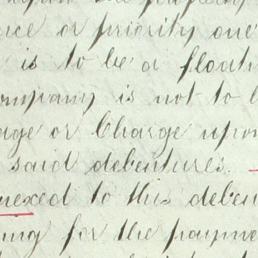 upon the property
nce or priority one
is to be a floati
ompany is not to b
age or Charge upon
said debentures.
nexed to this deben
ing for the payme